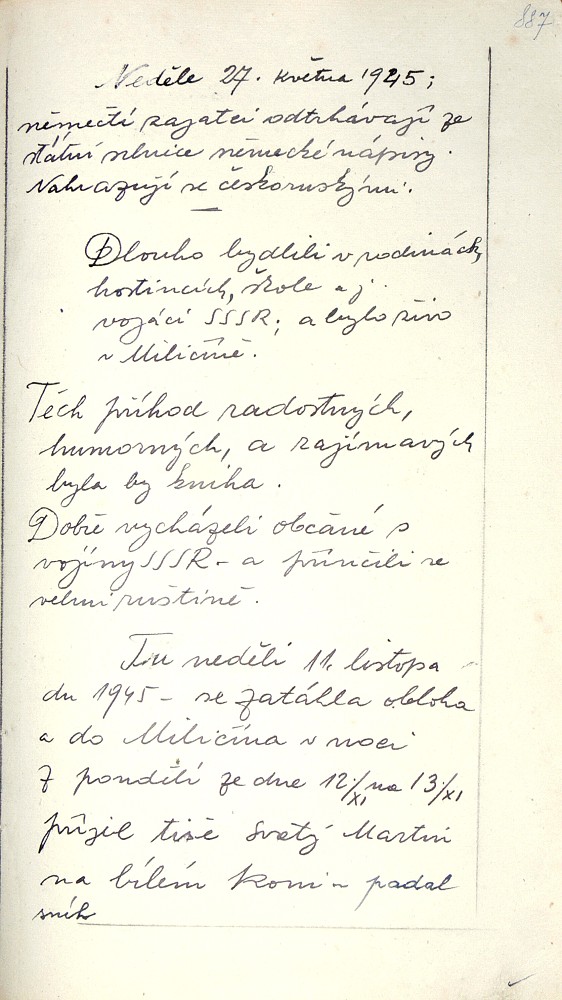 887
Neděle 27. května 1945;
němečtí zajatci odtrhávají ze
státní silnice německé nápisy.
Nahrazují se českoruskými.
Dlouho bydlili v rodinách,
hostincích, škole a j.
vojáci SSSR; a bylo živo
v Miličíně.
Těch příhod radostných,
humorných, a zajímavých
byla by kniha.
Dobře vycházeli občané s
vojíny SSSR - a přiučili se
velmi ruštině.
Tu neděli 11. listopa
du 1945 - se zatáhla obloha
a do Miličína v noci
z pondělí ze dne 12./XI na 13./XI
přijel tiše Svatý Martin
na bílém koni - padal
sníh